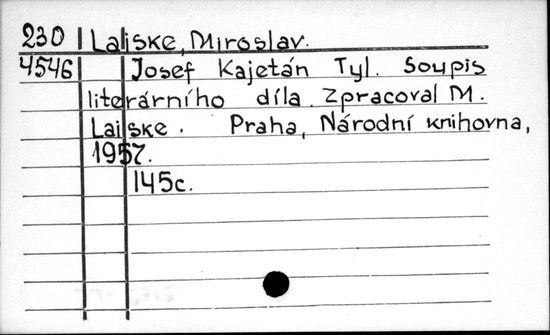 230 Laiske, Miroslav.
4546 Josef Kajetán Tyl. Soupis
literárního díla. Zpracoval M.
Laiske. Praha, Národní knihovna,
1957.
145c.